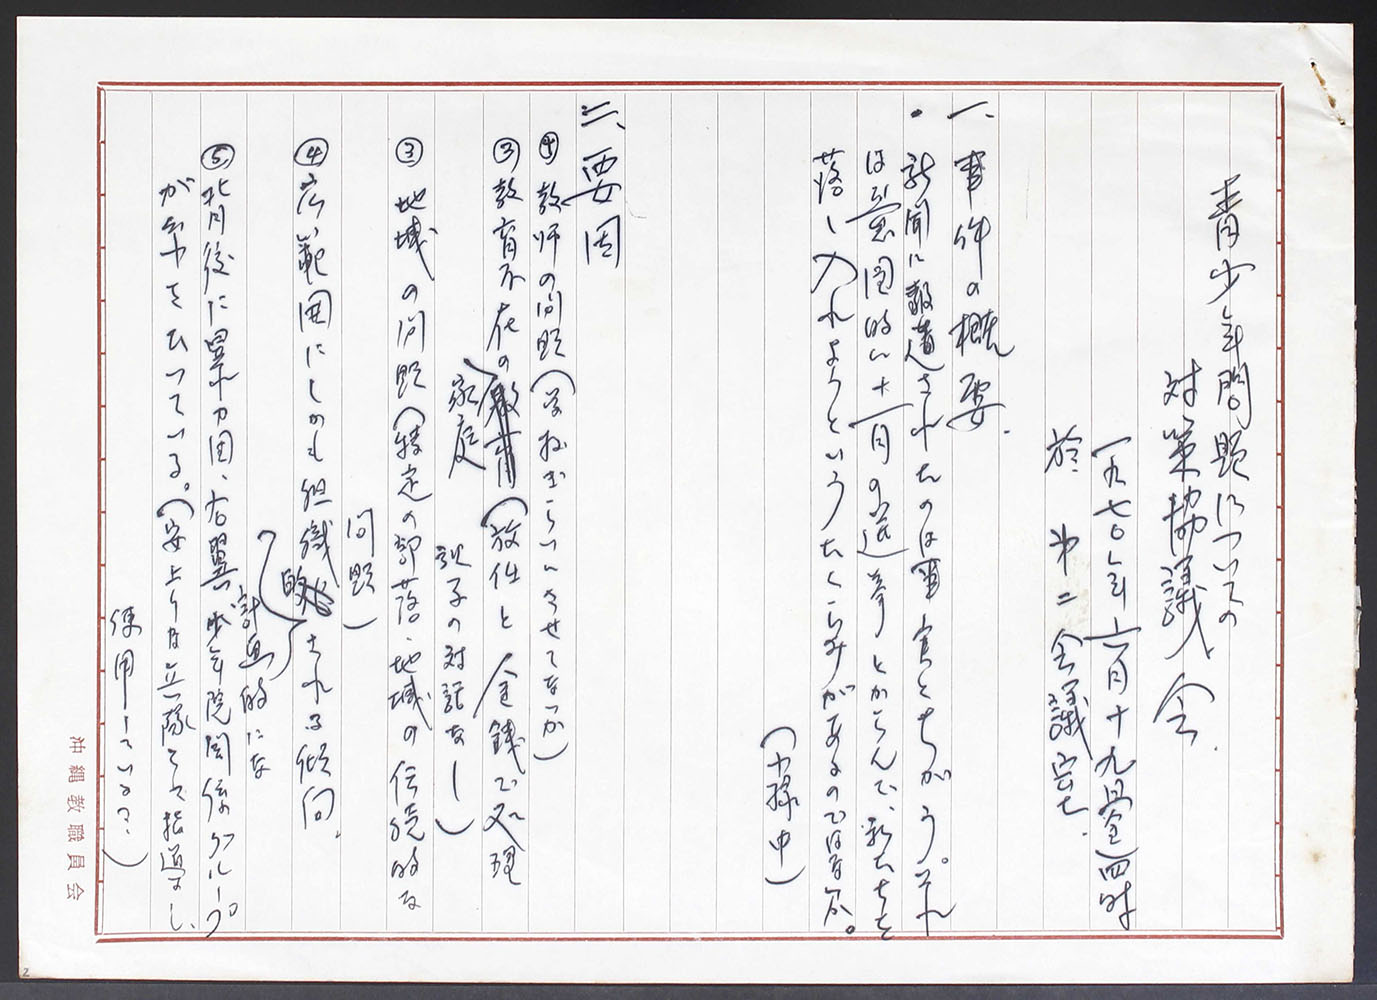 青少年問題についての
対策協議会.
一九七〇年六月十九日(金)四時
於 第二会議室.
一、事件の概要.
・新聞に報道されたのは事実とちがう。それ
は意図的に十一月の選挙とからんで、教え
落し入れようというたくらみがあるのではないか。
(小禄中)
二、要因
① 教師の問題(学校ぎらいにさせてないか)
② 教育不在の家庭(放任と金銭で処理
親子の対話なし)
③ 地域の問題(特定の部落・地域の伝統的な
問題)
④ 広い範囲にしかも組織的される傾向.
計画的にな
⑤ 背後に暴力団、右翼、少年院関係グループ
が糸をひいている。(安上りな兵隊として指導し、
使用している.)
沖縄教職員会
2